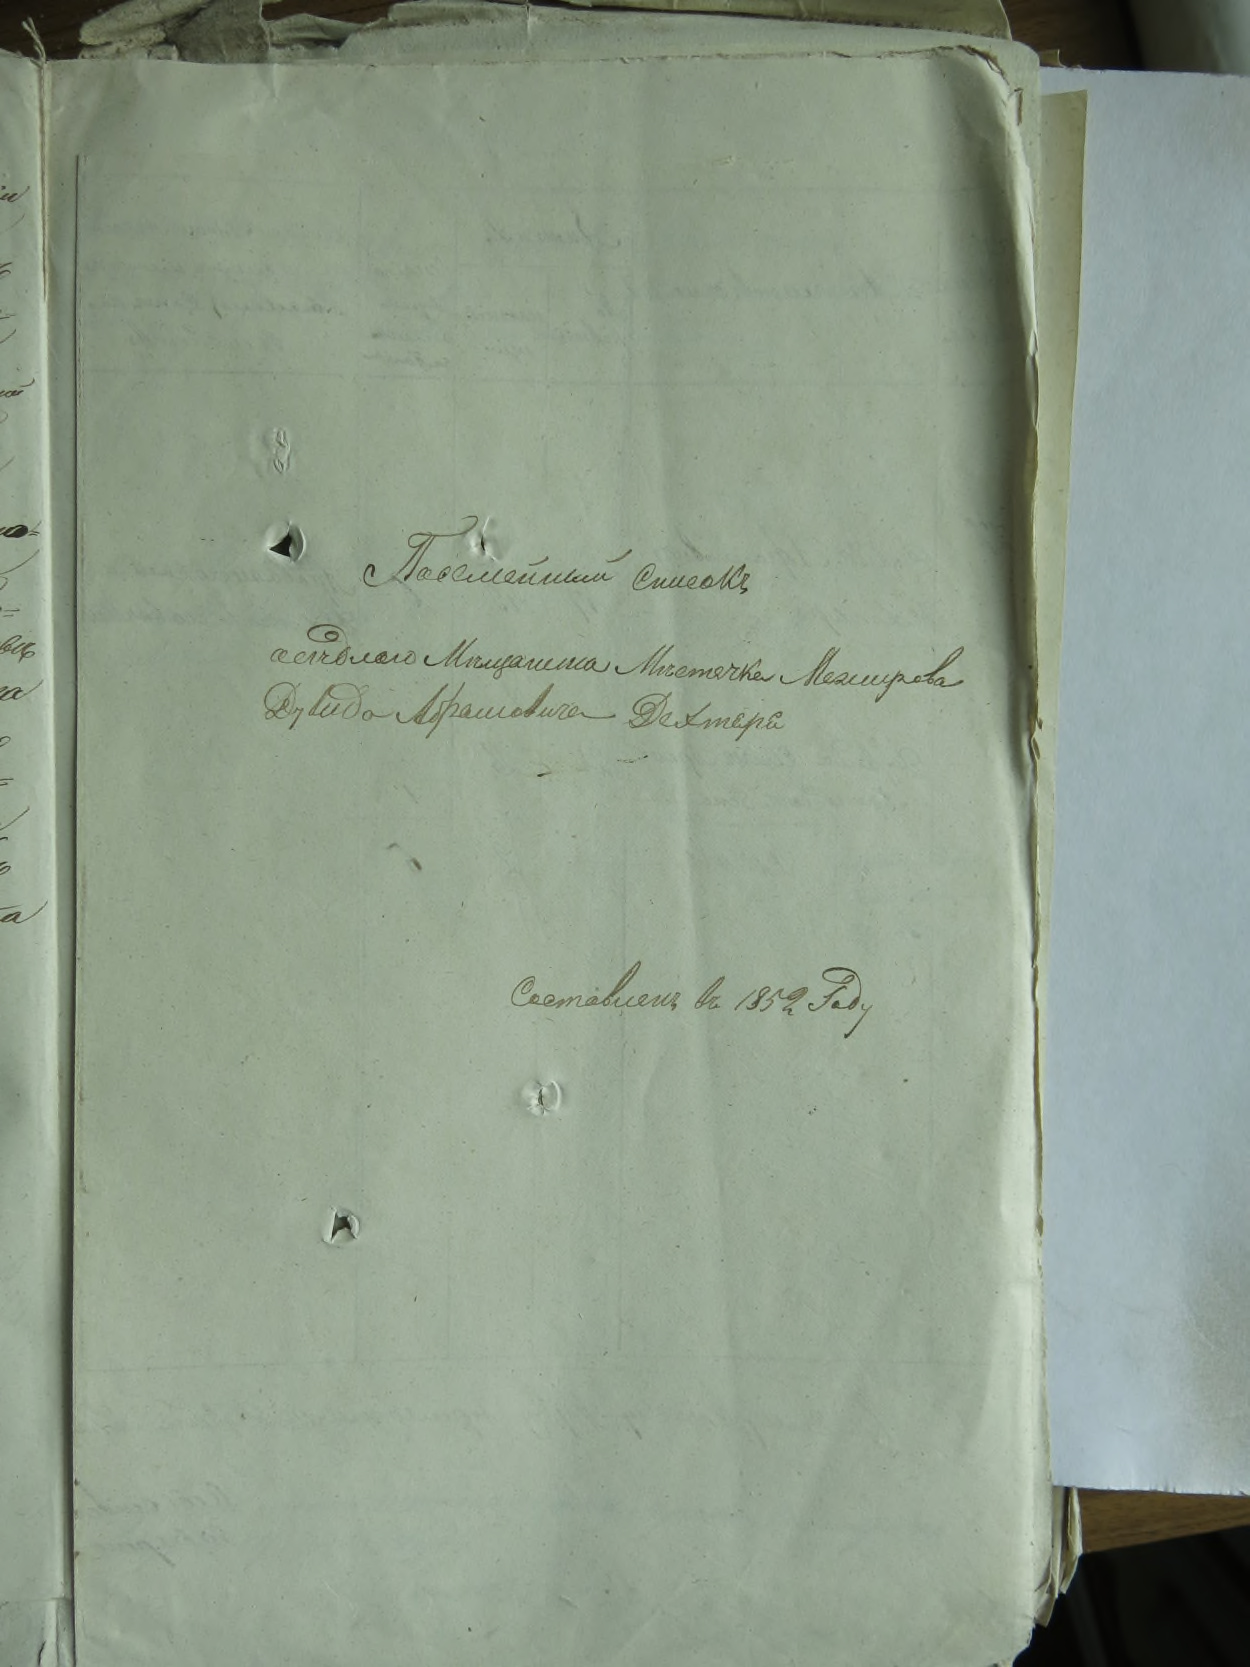 Посемейный списокъ
осѣдлаго Мѣщанина Мѣстечка Межирова
Дувида Абрамовича Дехтяра
Составленъ въ 1852 Году